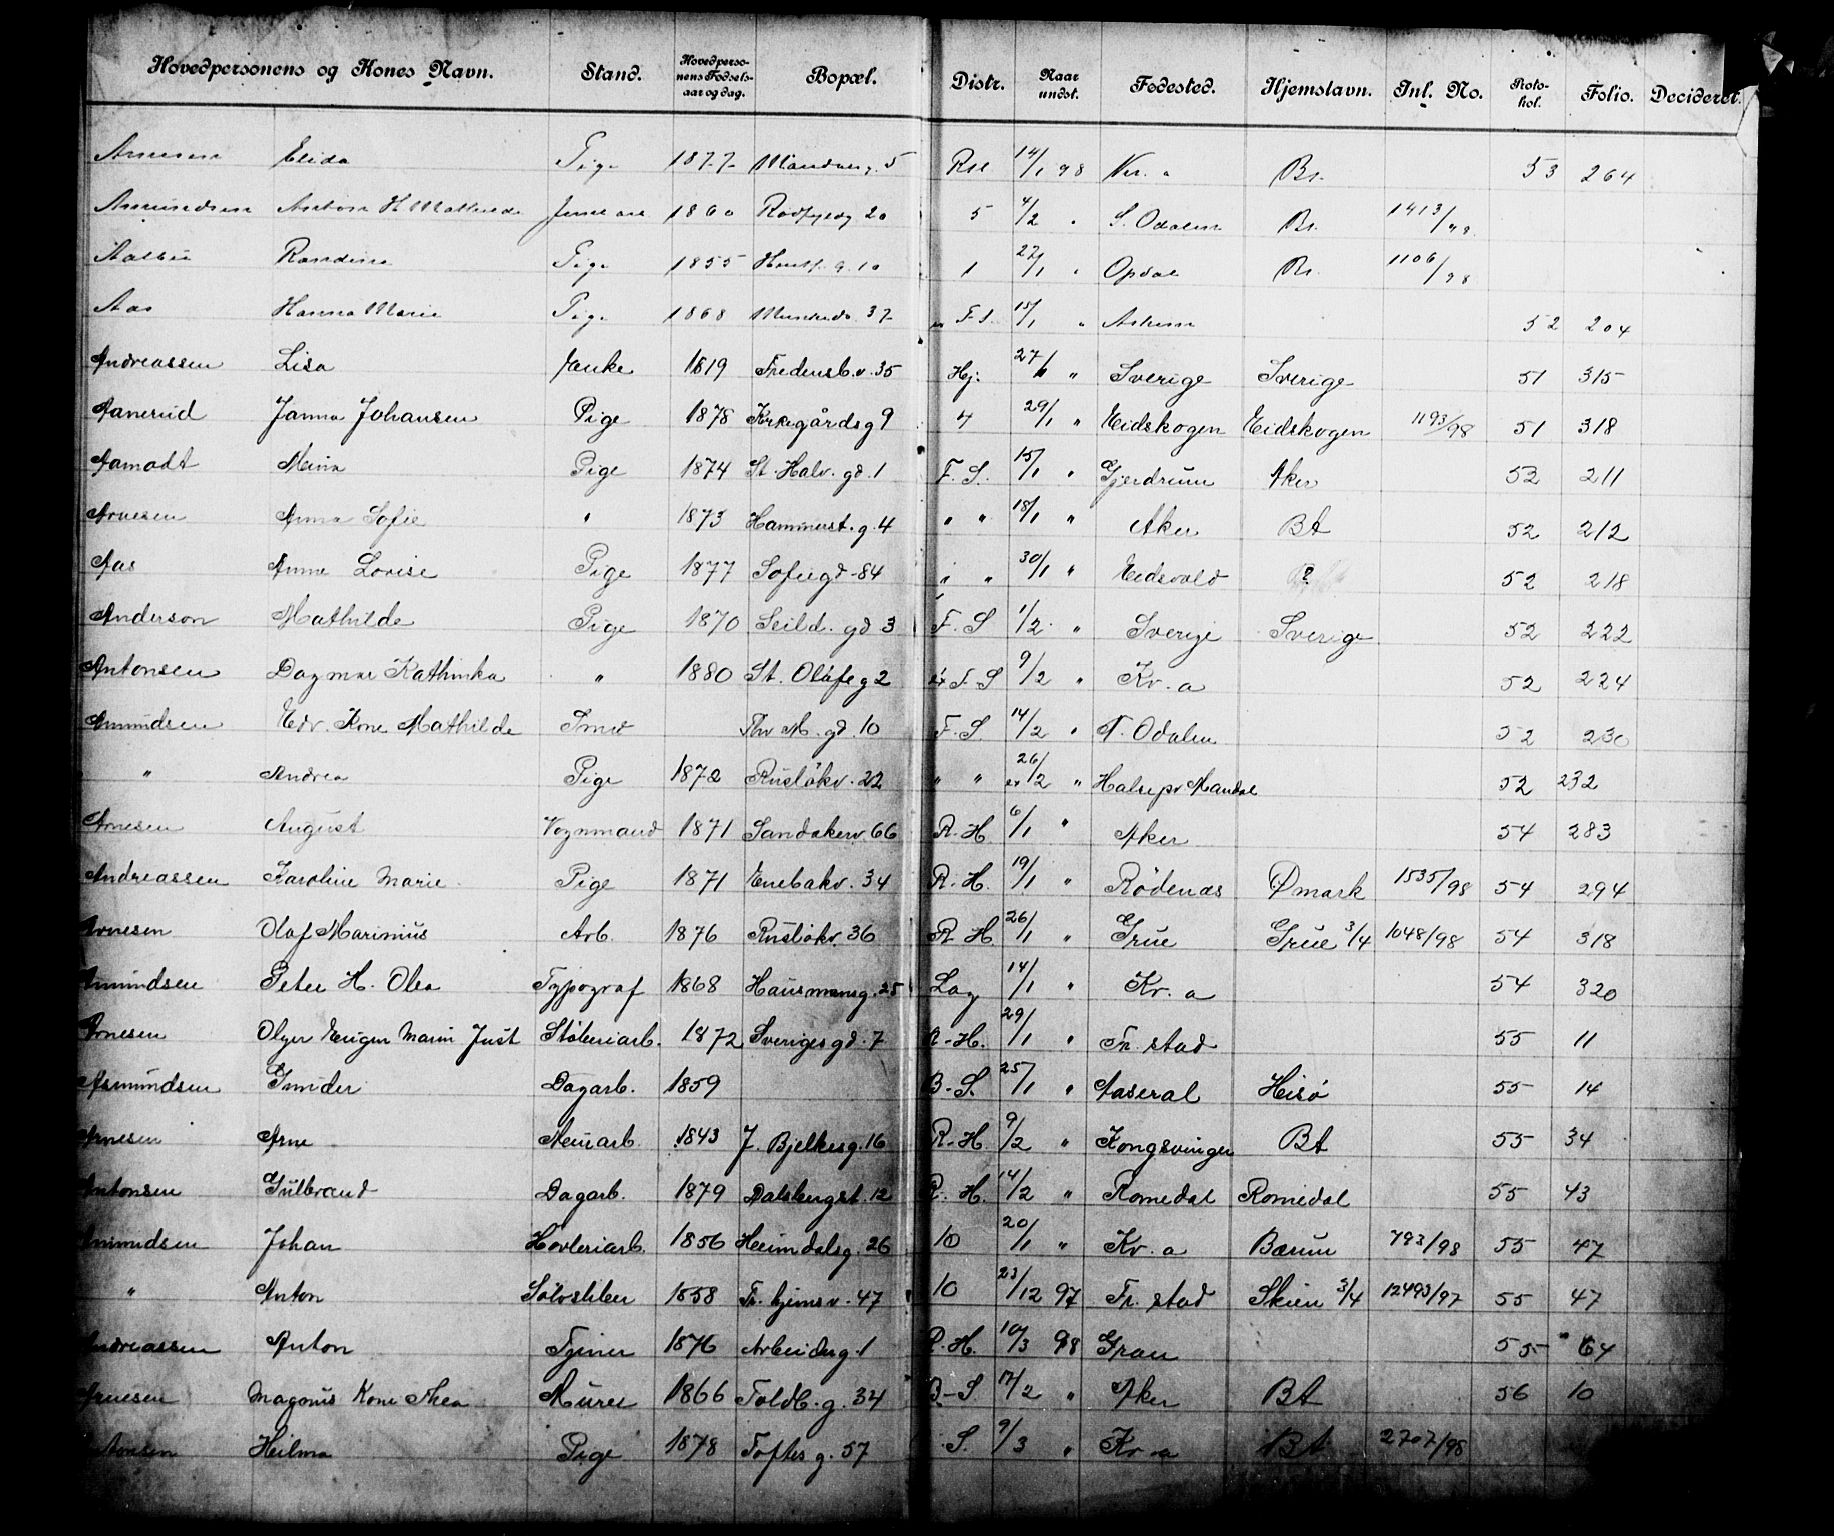 Hovedpersonens og Kones Navn. Stand. Hovedpersonens Fødselsaar og dag. Bopæl. Distr. Naar undst. Fødested. Hjemstavn. Inl. No. Protokol. Folio. Decideret.
Arnesen Elida Pige 1877 5 14/1 98 Kr. a Br. 53 264
Amundsen Anton K Mathilde 1860 20 5 4/2 " S. Odalen Br. 1413/98
Aalbu Randine Pige 1855 10 1 27/1 " Opdal Br. 1106/98
Aas Hanna Marie Pige 1868 Munkedv. 37 F.S. 15/1 " Askim 52 204
Andreassen Lisa Enke 1819 Fredensb.v. 35 Hj. 27/1 " Sverige Sverige 51 315
Aanerud Janna Johansen Pige 1878 Kirkegårdsg 9 4 29/1 " Eidskogen Eidskogen 1193/98 51 318
Aamodt Mina Pige 1874 St. Halv. gd. 1 F. S. 15/1 " Gjerdrum Aker 53 211
Arnesen Anna Sofie " 1873 Hammerst. g. 4 " " 18/1 " Aker BA 52 212
Aas Anne Lovise Pige 1877 Sofiegd - 84 " " 30/1 " Eidsvold ? 52 218
Anderson Mathilde Pige 1870 Seild. gd 3 F. S 1/2 " Sverige Sverige 52 222
Antonsen Dagmar Kathinka " 1880 St. Olafs g 2 F. S 9/2 " Kr. a 52 224
Amundsen Edv. Kone Mathilde Smed Thv M. gd. 10 F. S 14/2 " N. Odalen 52 230
" Andrea Pige 1872 Rusløkv. 22 " " 26/2 " Halsepr Mandal 52 232
Arnesen August Vognmand 1871 Sandakerv. 66 R. H 6/1 " Aker 54 283
Andreassen Karoline Marie Pige 1871 Enebakv. 34 R. H. 19/1 " Rødenæs Ømark 1535/98 54 294
Arnesen Olaf Marinius Arb. 1876 Rusløkv 36 R H 26/1 " Grue Grue 3/4 1048/98 54 318
Amundsen Peter H. Olea Typograf 1868 Hausmansg. 25 Lag 14/1 " Kr. a 54 320
Arnesen Olger Eugen Marin Just Støberiarb. 1872 Sverigesgd. 7 R-H. 29/1 " Fr. stad 55 11
Asmundsen Gunder Dagarb. 1859 B-S. 25/1 " Aaseral Heisø 55 14
Arnesen Arne 1843 J. Bjelkesg. 16 R-H. 9/2 " Kongsvinger BA 55 34
Antonsen Gulbrand Dagarb. 1879 Dalsbergst. 12 R. H. 14/2 " Romedal Romedal 55 43
Amundsen Johan Høvleriarb. 1856 Heimdalsg. 26 10 20/1 " Kr. a Bærum 793/98 55 47
" Anton Sølvsliber 1858 Fr. hjemsv. 47 10 23/12 97 Fr. stad Skien 3/4 12493/97 55 47
Andreassen Anton Tjener 1876 Arbeiderg. 1 R. H. 10/3 98 Gran 55 64
Arnesen Magnus Kone Thea Murer 1866 Toldb. g. 34 B-S 17/2 " Aker BA 56 10
Antonsen Heilma Pige 1878 Toftes g. 57 S. 9/3 " Kr. a BA 2707/98